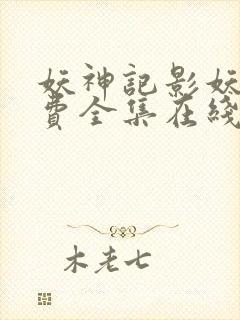 妖神記影妖
費全集在綫
木老七